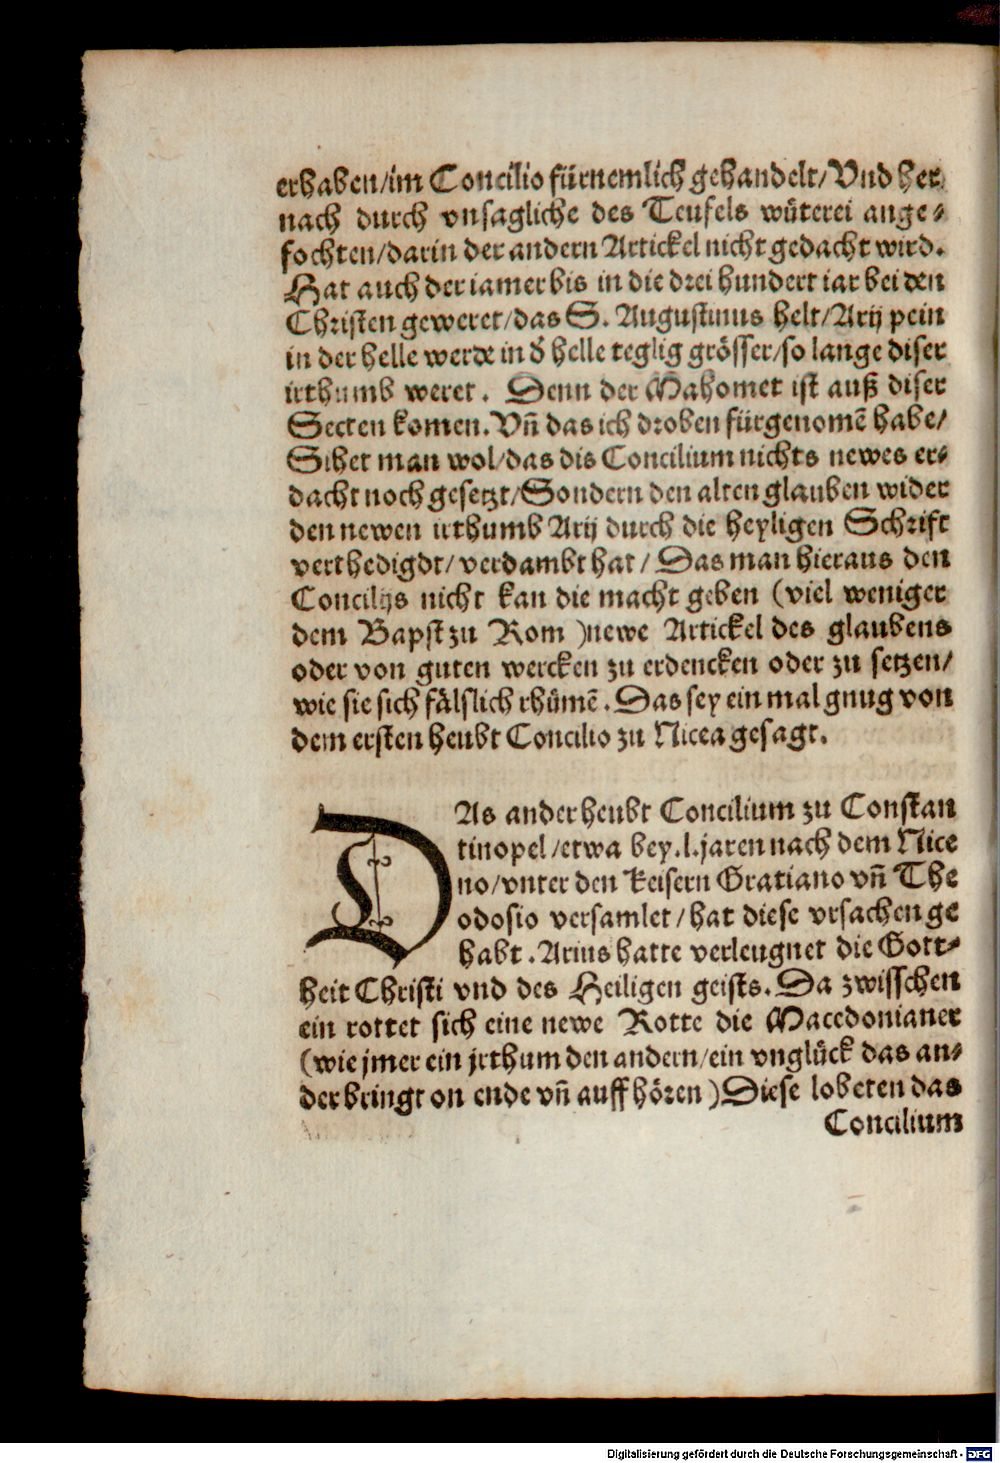 erhaben/im Concilio fürnemlich gehandelt/Vnd her
nach durch vnsagliche des Teufels wüterei ange-
fochten/darin der andern Artickel nicht gedacht wird.
Hat auch der iamer bis in die drei hundert iar bei den
Christen geweret/das S. Augustinus helt/Arij pein
in der helle werde in d̕ helle teglig grösser/so lange diser
irthumb weret. Denn der Mahomet ist auß diser
Secten komen. Vñ das ich droben fürgenomē habe/
Sihet man wol/das dis Concilium nichts newes er-
dacht noch gesetzt/Sondern den alten glauben wider
den newen irthumb Arij durch die heyligen Schrift
verthedigdt/verdambt hat/Das man hieraus den
Concilijs nicht kan die macht geben (viel weniger
dem Bapst zu Rom )newe Artickel des glaubens
oder von guten wercken zu erdencken oder zu setzen/
wie sie sich fälslich rhümē. Das sey ein mal gnug von
dem ersten heubt Concilio zu Nicea gesagt.
DAs ander heubt Concilium zu Constan
tinopel/etwa bey.l.jaren nach dem Nice
no/vnter den Keisern Gratiano vñ The
odosio versamlet/hat diese vrsachen ge
habt. Arius hatte verleugnet die Gott-
heit Christi vnd des Heiligen geists. Da zwisschen
ein rottet sich eine newe Rotte die Macedonianer
(wie jmer ein jrthum den andern/ein vnglück das an-
der bringt on ende vñ auffhören )Diese lobeten das
Concilium
Digitalisierung gefördert durch die Deutsche Forschungsgemeinschaft - DFG